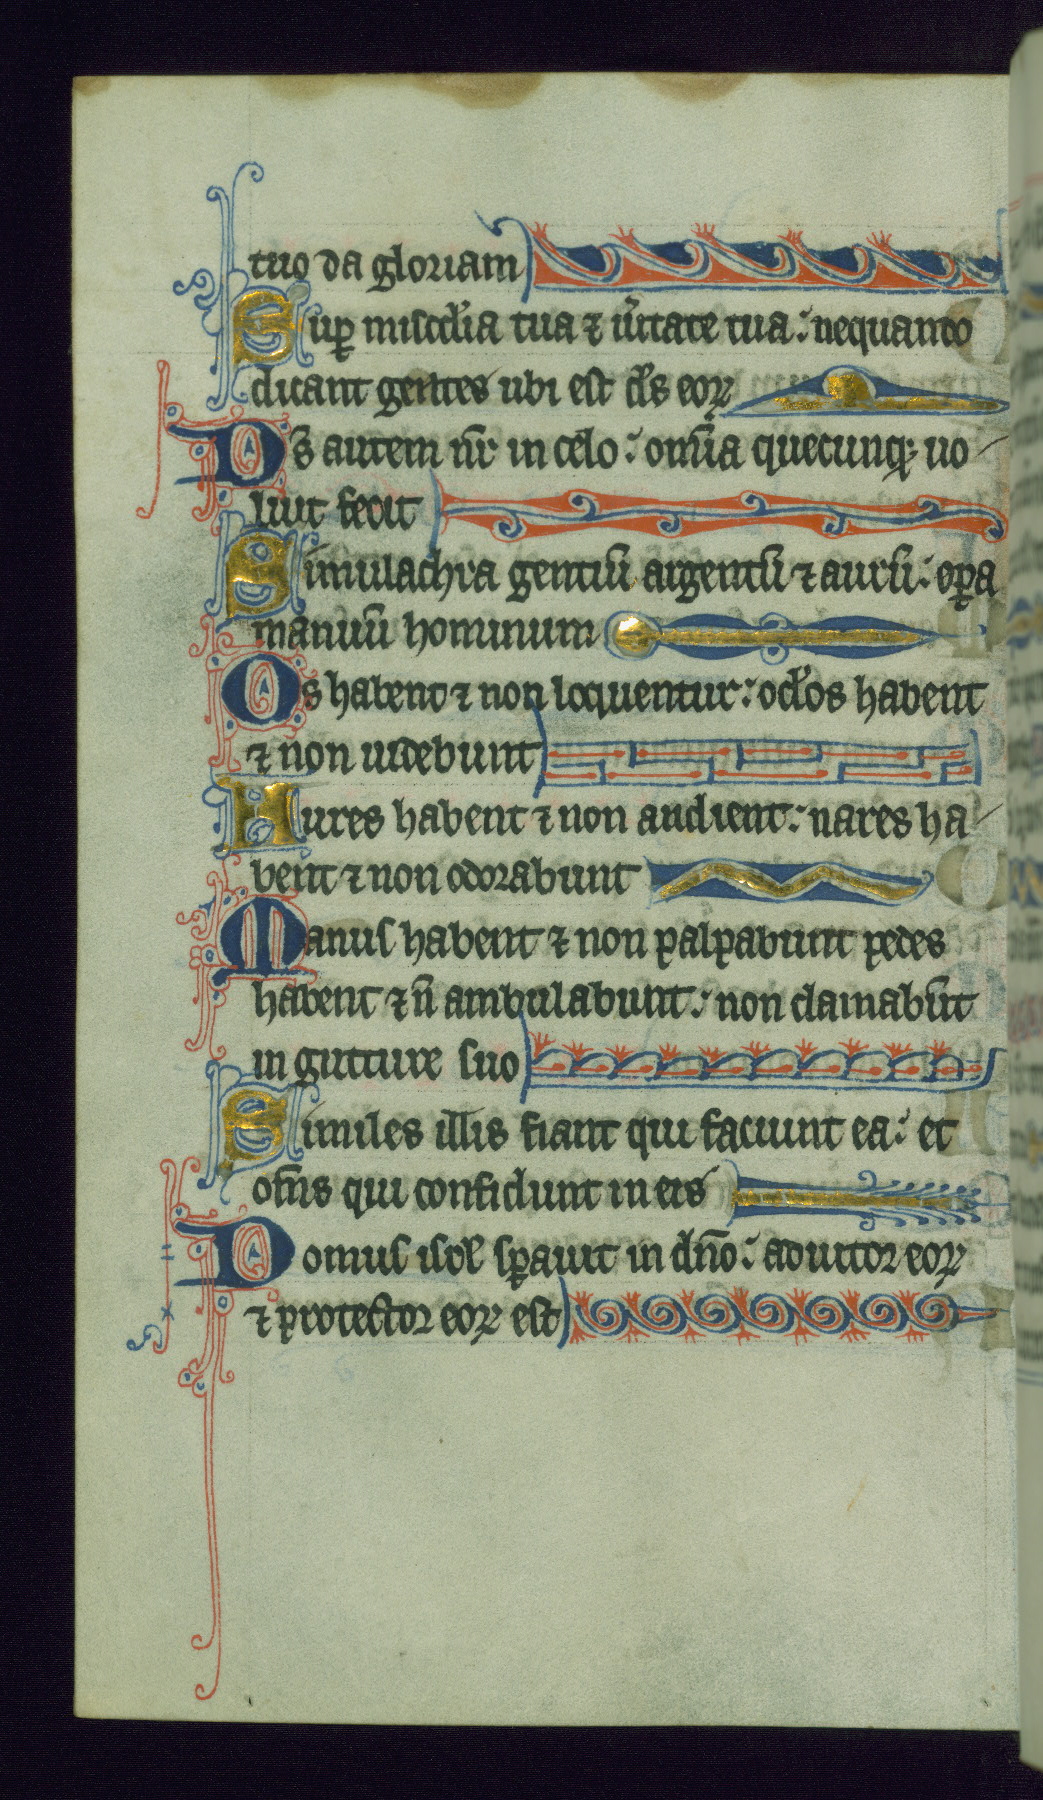 tuo da gloriam
Sup̱ misc̄dia tua ⁊ ūitate tua: nequando
dicant gentes ubi est d̄s eoꝝ
Ds̄ autem nr̄ in celo: om̄ia quecunqꝫ uo
luit fecit
Simulachra gentiū argentū ⁊ aurū: oꝑa
manuū hominum
Os habent ⁊ non loquentur: oc̄los habent
⁊ non uidebunt
Aures habent ⁊ non audient: nares ha
bent ⁊ non odorabunt
Manus habent ⁊ non palpabunt pedes
habent ⁊ n̄ ambulabunt: non clamabūt
in gutture suo
Similes illis fiant qui faciunt ea: et
om̄s qui confidunt in eis
Domus isrl̄ sꝑauit in dn̄o: adiutor eoꝝ
⁊ protector eoꝝ est